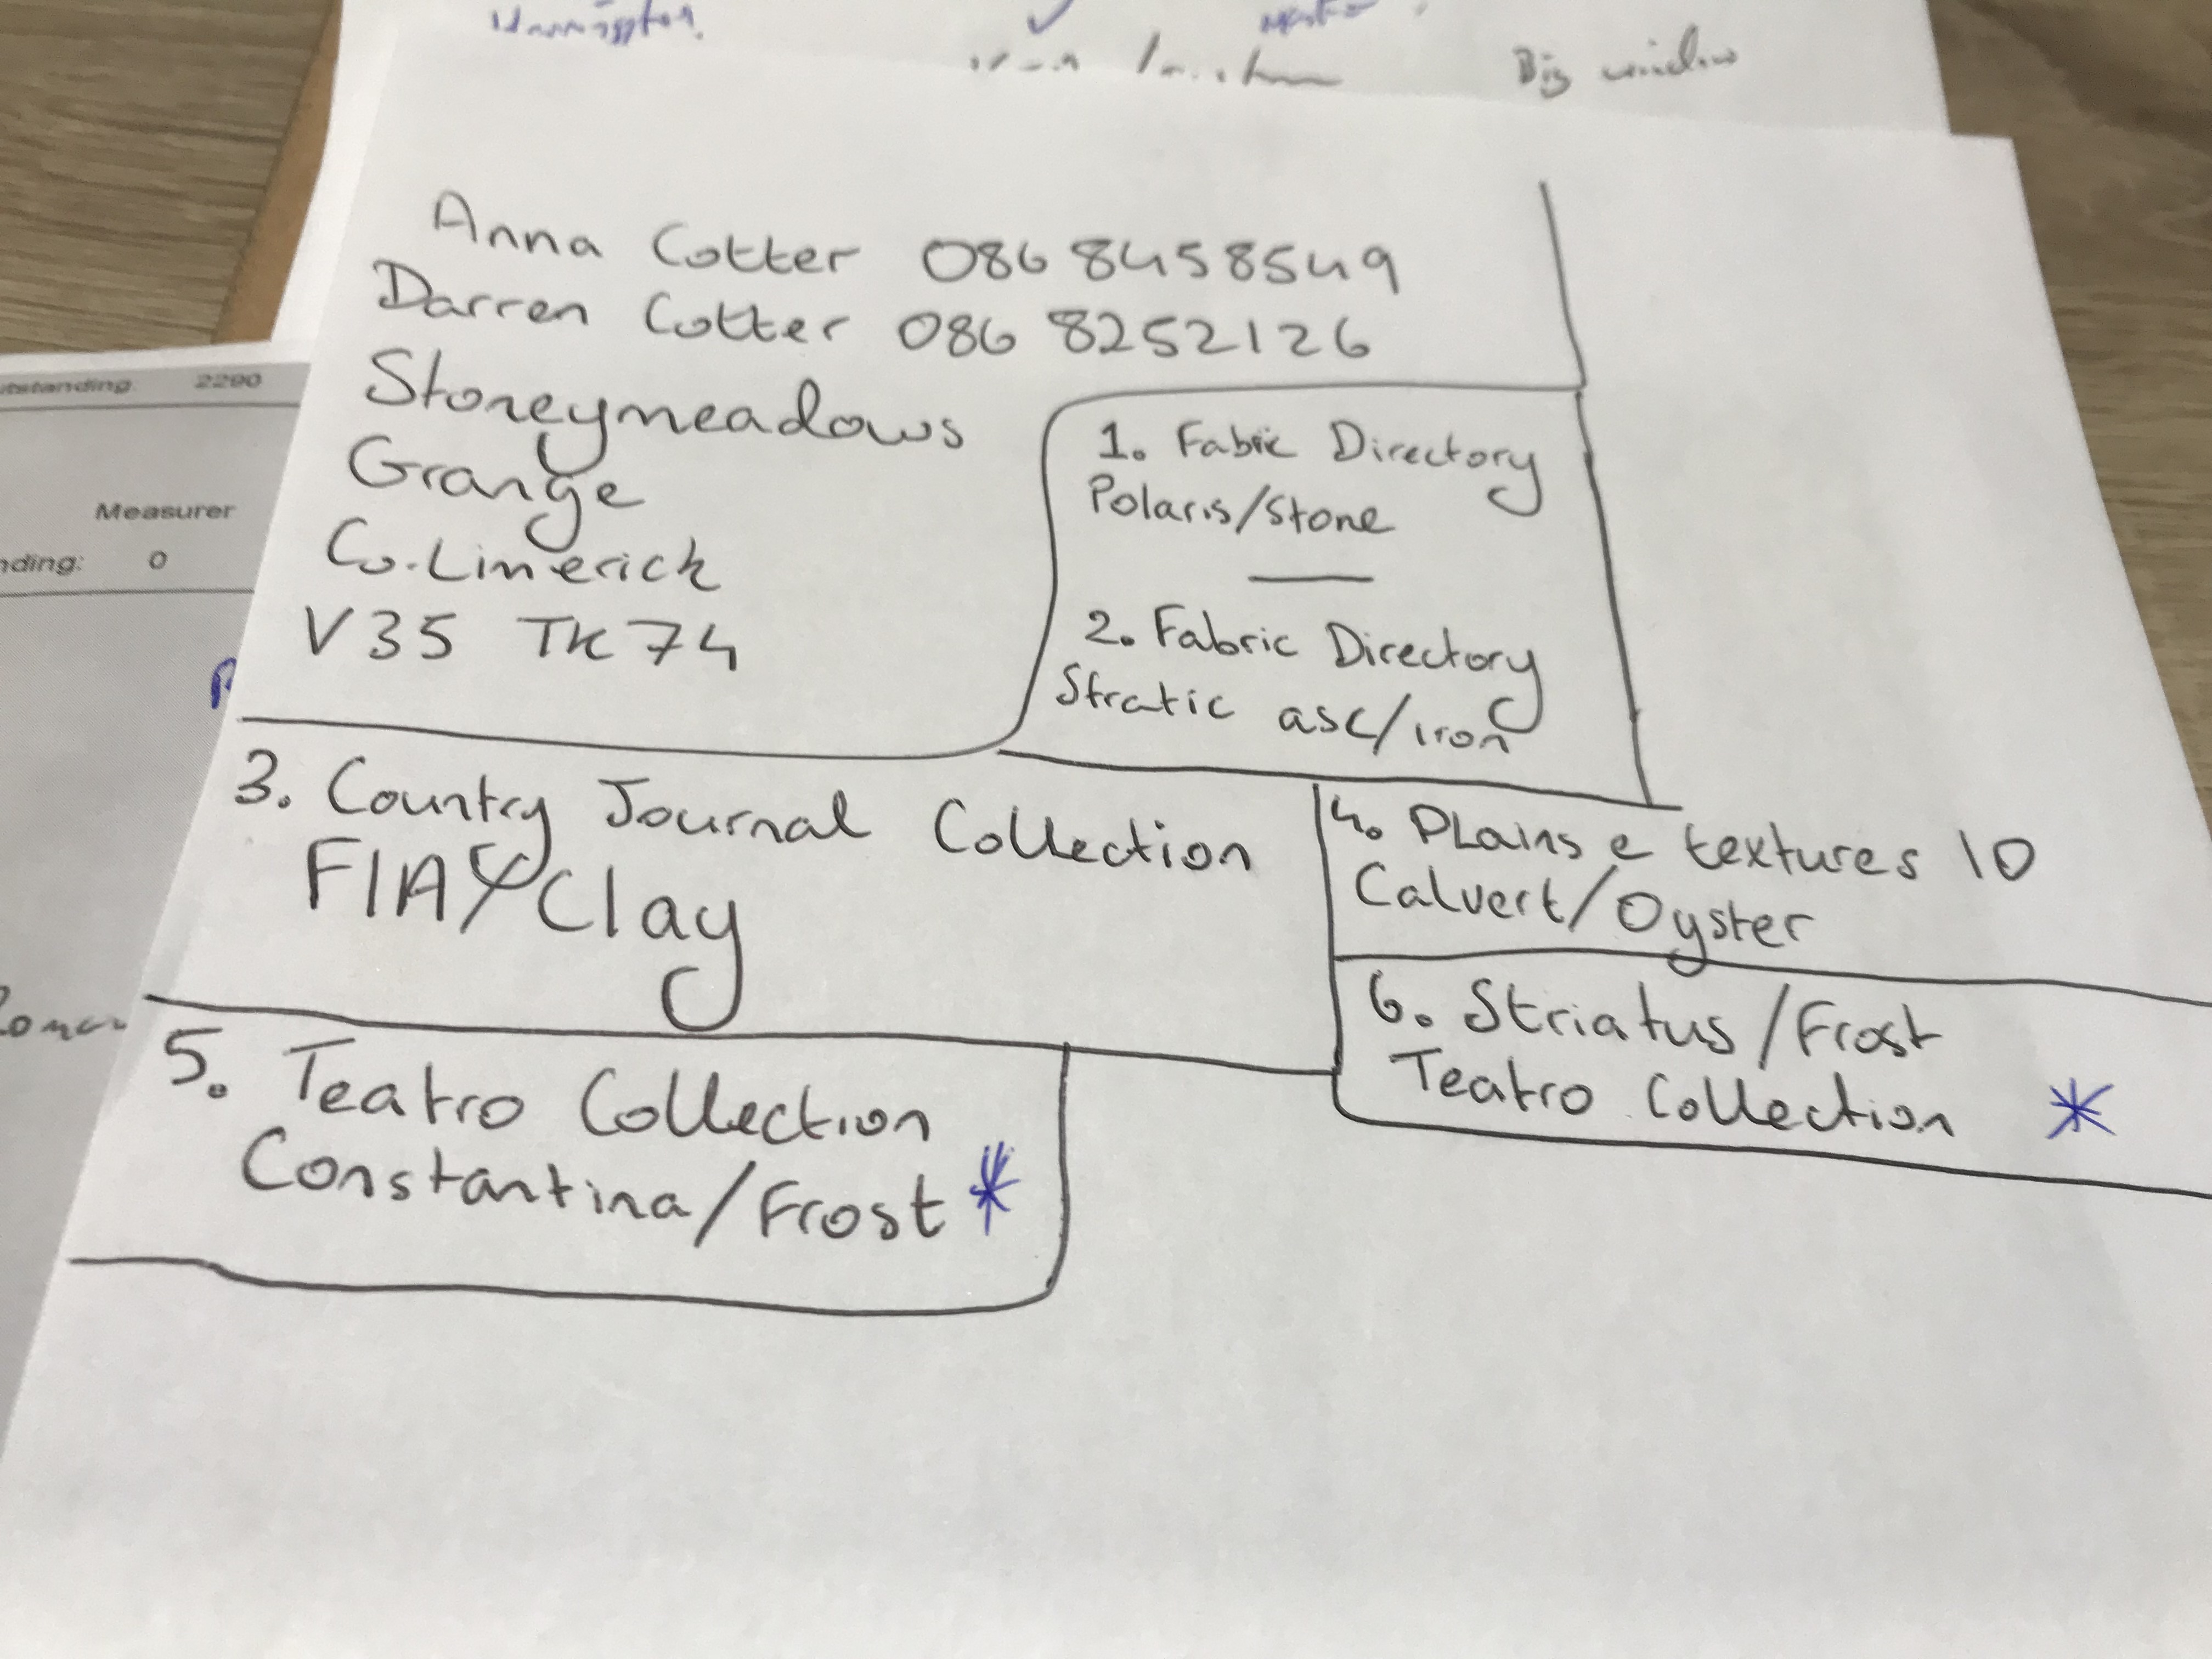 Big window
Anna Cotter 086 8458549
Darren Cotter 086 8252126
Stoneymeadows
Grange
Co. Limerick
V35 TK74
1. Fabric Directory
Polaris/Stone
2. Fabric Directory
Stratic asc/iron
3. Country Journal Collection
FIA/Clay
4. Plains e textures 10
Calvert/Oyster
5. Teatro Collection
Constantina/Frost *
6. Striatus/Frost
Teatro Collection *
utstanding: 2290
Measurer
nding: 0